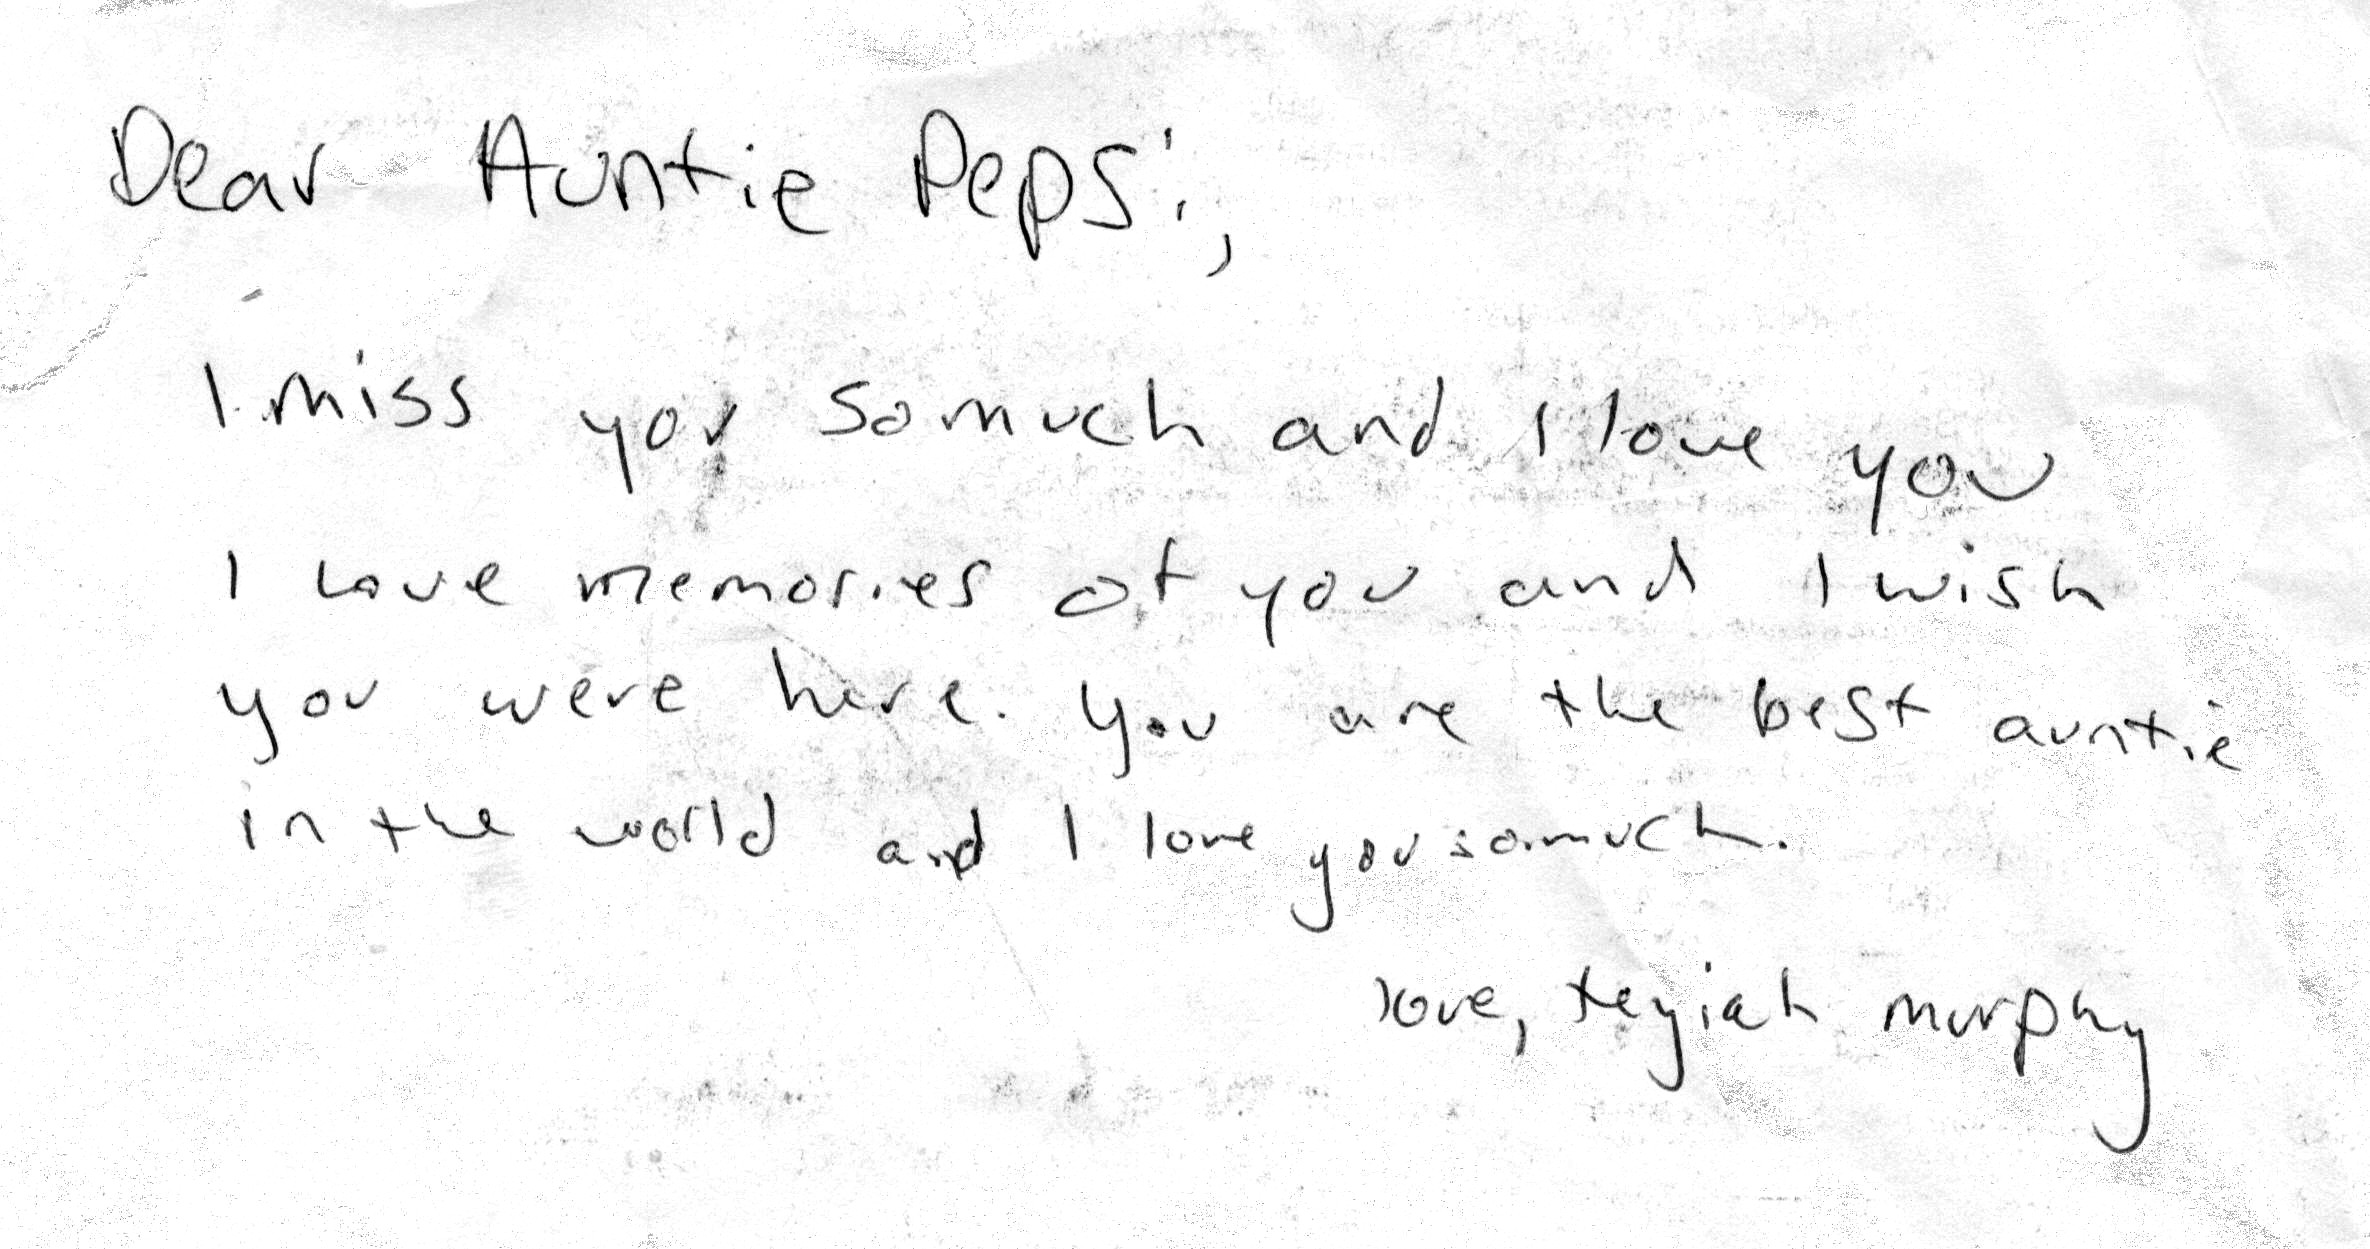 Dear Auntie Pepsi,
I miss you so much and I love you
I love memories of you and I wish
you were here. You are the best auntie
in the world and I love you so much.
love, teyiah murphy